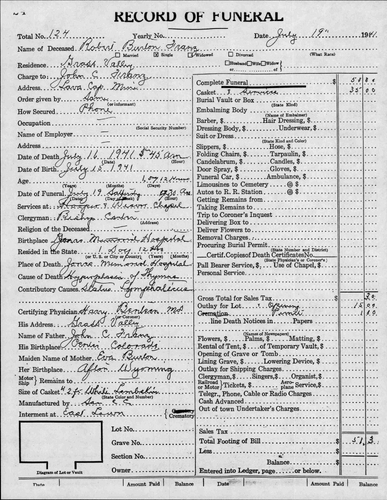 RECORD OF FUNERAL
Total No. 124 Yearly No. Date July 19th 1941
Name of Deceased Robert Burton Franz
Married Single Widowed Divorced (What Race)
Residence Grass Valley Husband Wife Widow of
Charge to John C. Franz
Address Lava Cap Mine
Order given by Same
(or informant)
How Secured Phone
Occupation
(Social Security Number)
Name of Employer
Address
Date of Death July 16 1941 5:45 am
Date of Birth July 15 1941
Age
Date of Funeral July 19 Saturday
Services at Hooper & Weaver Chapel
Clergyman Bishop
Religion of the Deceased
Birthplace Jones Memorial Hospital
Resided in the State 1 Day
(or U.S. or City or County)
Place of Death Jones Memorial Hospital
Cause of Death of Thymus
Contributory Causes Status Lymphaticus
Certifying Physician M.D.
His Address Grass Valley
Name of Father John C. Franz
His Birthplace Colorado
Maiden Name of Mother Eva Burton
Her Birthplace Afton Wyoming
Motor Ship Remains to
Size of Casket 2 ft White
(State Color and Number)
Manufactured by
Interment at Lawn Cemetery Crematory
Lot No.
Grave No.
Section No.
Owner
Diagram of Lot or Vault
Complete Funeral $
Casket & Services 35 00
Burial Vault or Box
(State Kind)
Embalming Body
(Name of Embalmer)
Barber, $ Hair Dressing, $
Dressing Body, $ Underwear, $
Suit or Dress
(State Kind and Color)
Slippers, $ Hose, $
Folding Chairs, $ Tarpaulin, $
Candelabrum, $ Candles, $
Door Spray, $ Gloves, $
Funeral Car, $ Ambulance, $
Limousines to Cemetery @ $
Autos to R. R. Station @ $
Getting Remains from
Taking Remains to
Trip to Coroner's Inquest
Delivering Box to
Deliver Flowers to
Removal Charges
Procuring Burial Permit
(State Number and District)
Certif. Copies of Death Certificates
(State Physician's or Coroner's)
Pall Bearer Service, $ Use of Chapel, $
Personal Service
Gross Total for Sales Tax $
Outlay for Lot Opening 15 00
Cremation Permit 1 00
line Death Notices in Papers
(Names of Newspapers)
Flowers, $ Palms, $ Matting, $
Rental of Tent, $ of Temporary Vault, $
Opening of Grave or Tomb
Lining Grave, $ Lowering Device, $
Outlay for Shipping Charges
Clergyman, $ Singers, $ Organist, $
Railroad or Motor Tickets, $ Aeroplane Service, $
Telegr., Phone, Cable or Radio Charges
Cash Advanced
Out of town Undertaker's Charges
Sales Tax
Total Footing of Bill $
Less
Balance
Entered into Ledger, page or below.
Date Amount Paid Balance Date Amount Paid Balance